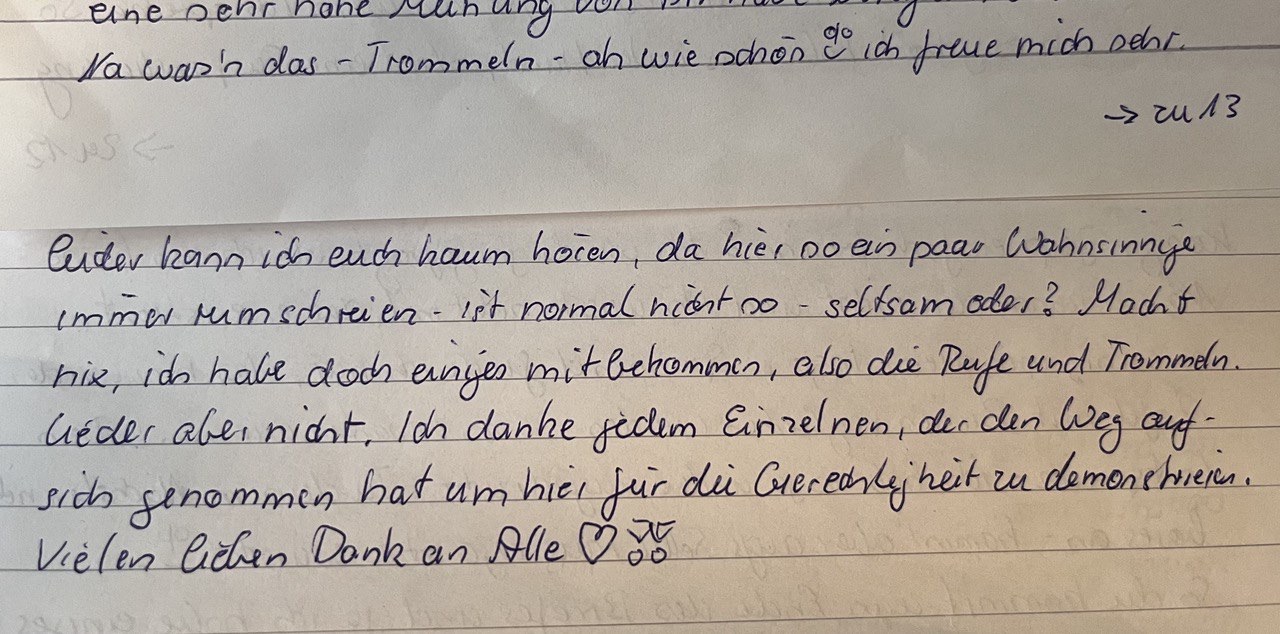 eine sehr hohe Meinung von
Na was'n das - Trommeln - ah wie schön ich freue mich sehr.
→ zu 13
Leider kann ich euch kaum hören, da hier so ein paar Wahnsinnige
immer rumschreien - ist normal nicht so - seltsam oder? Macht
nix, ich habe doch einiges mitbekommen, also die Rufe und Trommeln.
Lieder aber nicht. Ich danke jedem Einzelnen, der den Weg auf-
sich genommen hat um hier für die Gerechtigkeit zu demonstrieren.
Vielen lieben Dank an Alle ♡